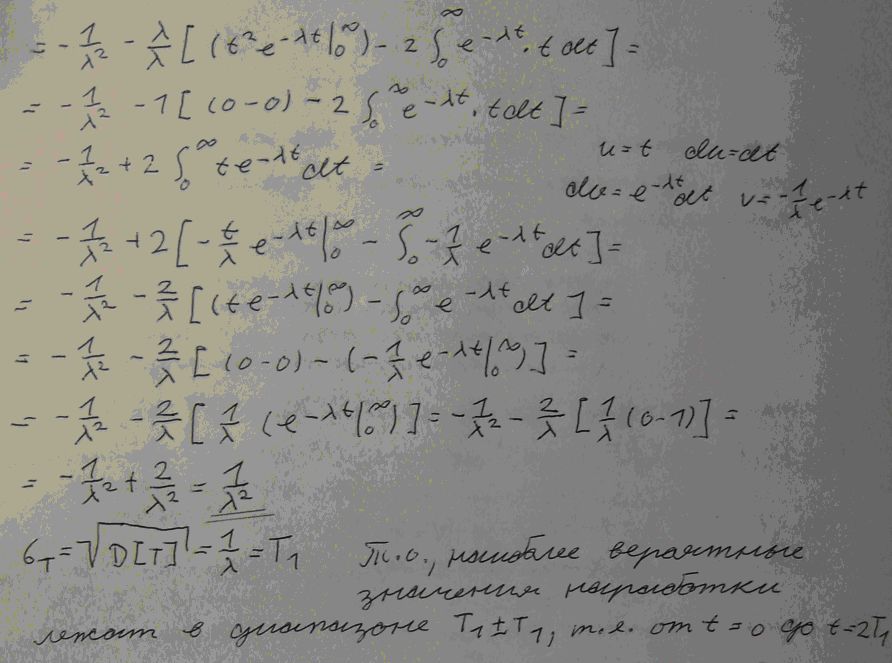 = - 1/λ² - λ/λ [ (t² e^{-λt} |₀^∞) - 2 ∫₀^∞ e^{-λt} · t dt ] =
= - 1/λ² - 1 [ (0-0) - 2 ∫₀^∞ e^{-λt} · t dt ] =
= - 1/λ² + 2 ∫₀^∞ t e^{-λt} dt =
u = t du = dt
dv = e^{-λt} dt v = - 1/λ e^{-λt}
= - 1/λ² + 2 [ - t/λ e^{-λt} |₀^∞ - ∫₀^∞ - 1/λ e^{-λt} dt ] =
= - 1/λ² - 2/λ [ (t e^{-λt} |₀^∞) - ∫₀^∞ e^{-λt} dt ] =
= - 1/λ² - 2/λ [ (0-0) - (- 1/λ e^{-λt} |₀^∞) ] =
= - 1/λ² - 2/λ [ 1/λ (e^{-λt} |₀^∞) ] = - 1/λ² - 2/λ [ 1/λ (0-1) ] =
= - 1/λ² + 2/λ² = 1/λ²
σ_T = √D[T] = 1/λ = T₁ Т.о., наиболее вероятные
значения наработки
лежат в диапазоне T₁ ± T₁, т.е. от t = 0 до t = 2T₁